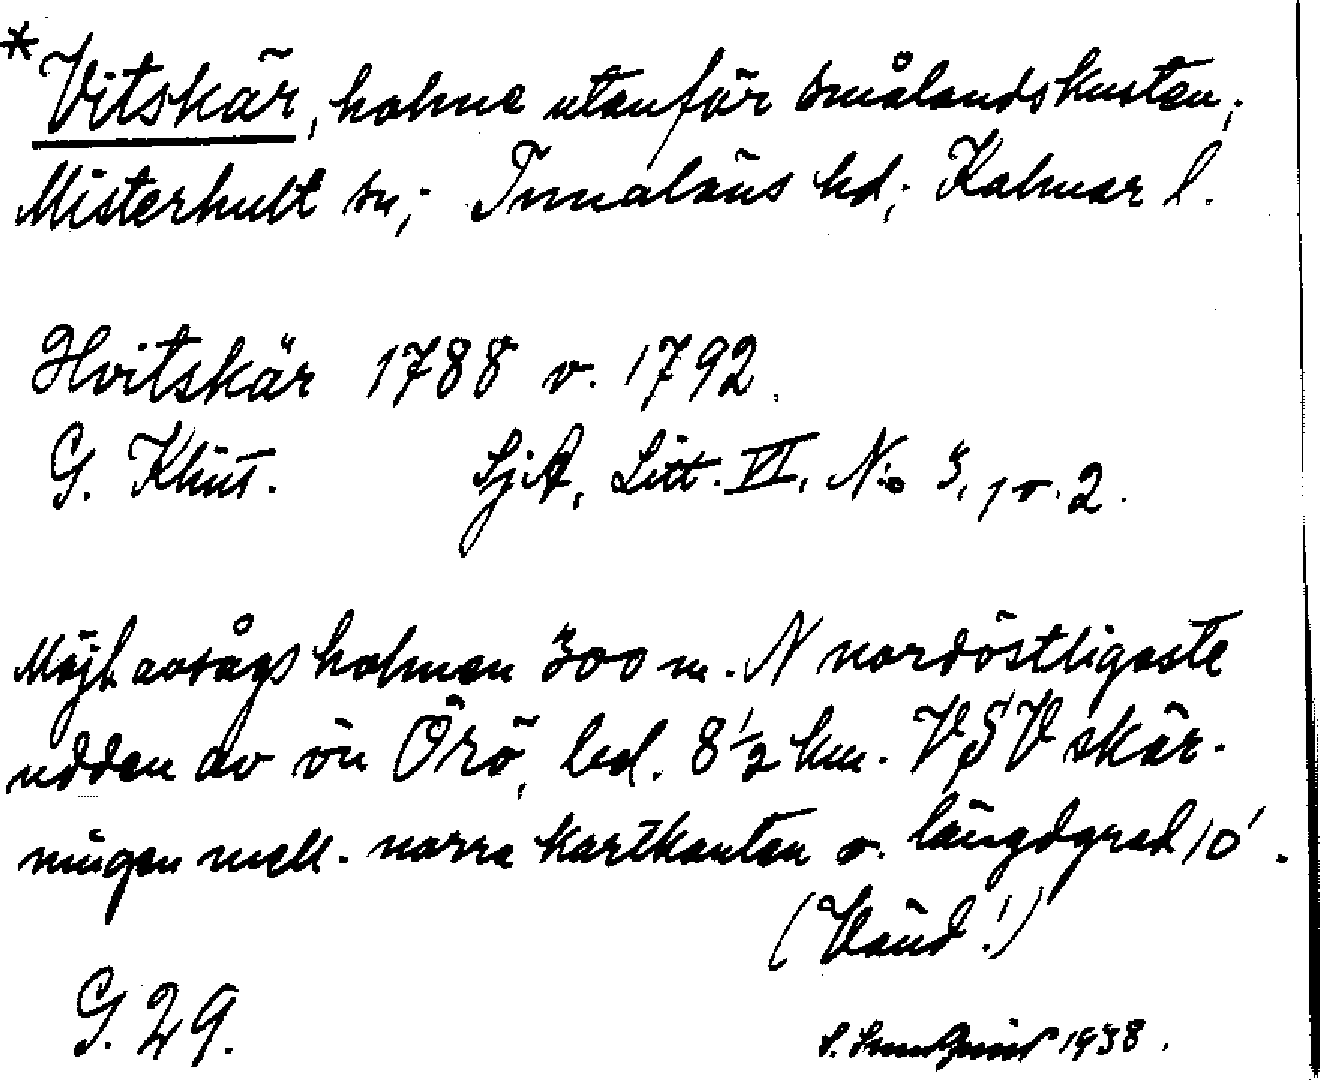 *Vitskär, holme utanför Smålandskusten;
Misterhult sn; Tunaläns hd; Kalmar l.
Hvitskär 1788 o. 1792.
G. Klint. SjA, Litt. VI, No 3, 1 o. 2.
Möjl. avsågs holmen 300 m. N nordöstligaste
udden av ön Örö, bel. 8 1/2 km. VSV skär-
ningen mell. norra kartkanten o. längdgrad 10'.
(Vänd!)
G. 29.
1938.